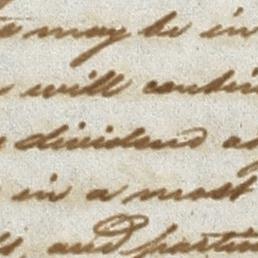 may be in
will contin
dividend as
in a most
and partic